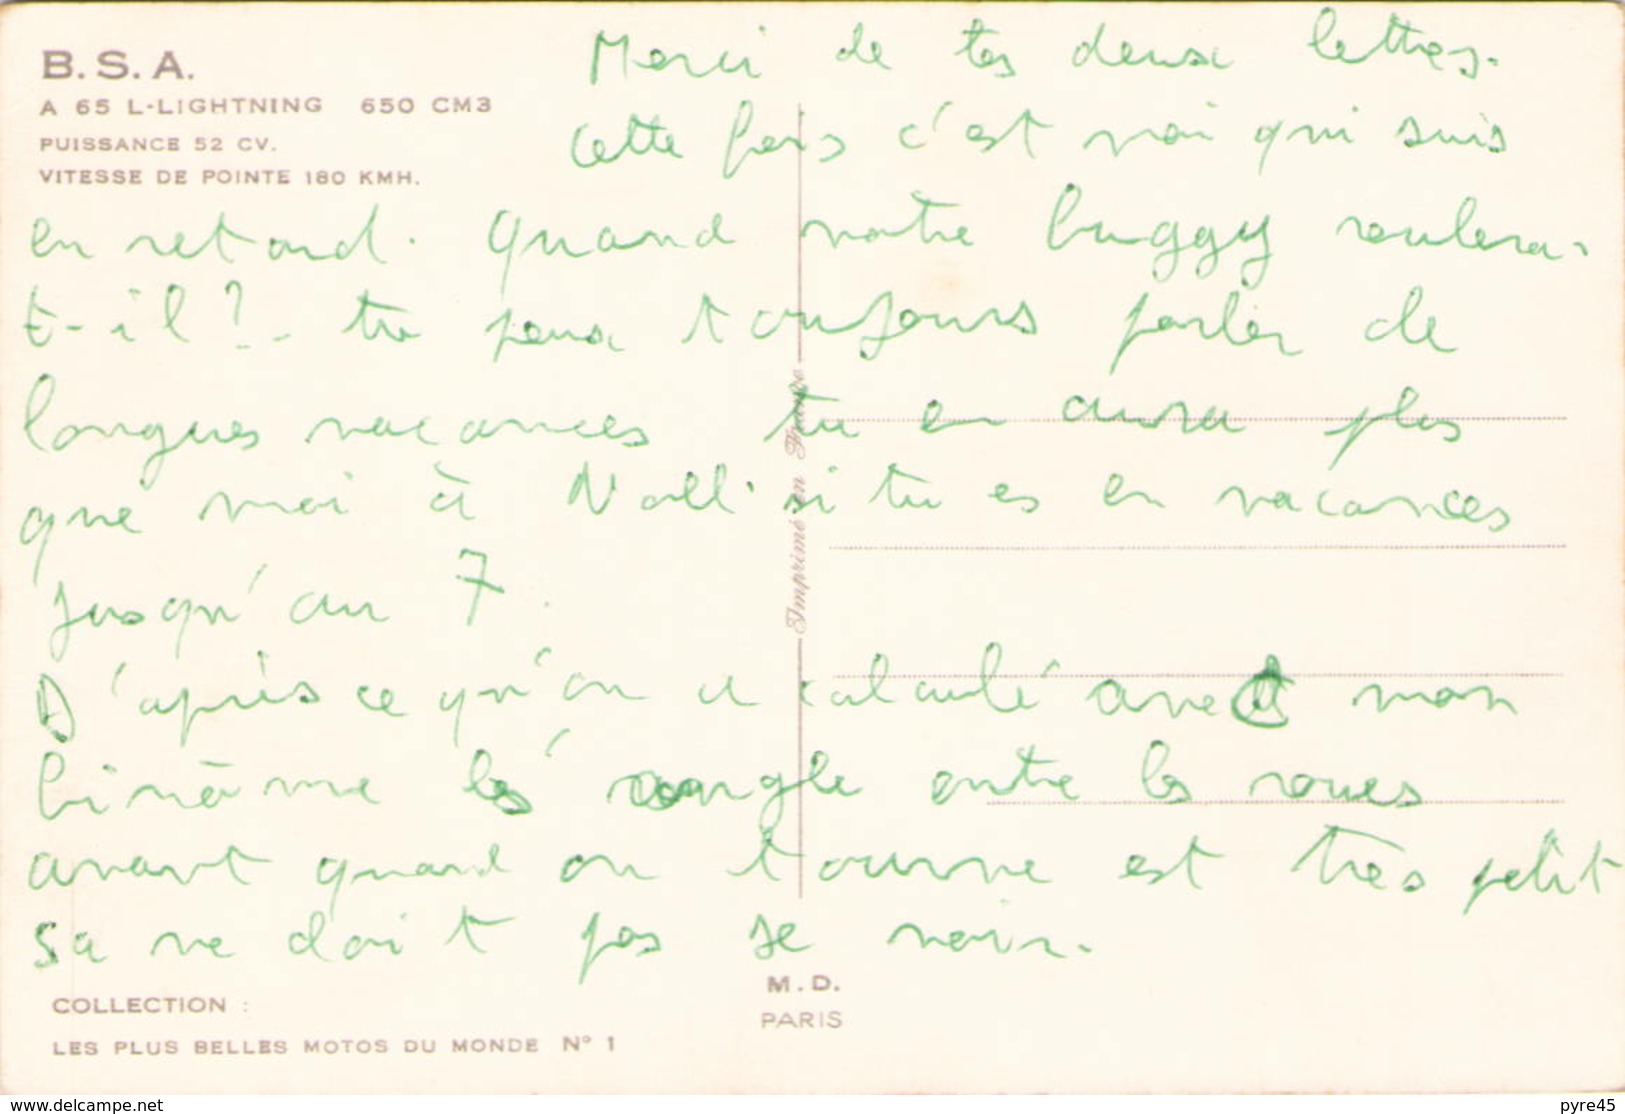 B.S.A.
A 65 L-LIGHTNING 650 CM3
PUISSANCE 52 CV.
VITESSE DE POINTE 180 KMH.
Merci de tes deux lettres.
Cette fois c'est moi qui suis
en retard. Quand notre buggy roulera-
t-il? - tu peux toujours parler de
longues vacances tu en aura plus
que moi à Noël. si tu es en vacances
jusqu'au 7.
D'après ce qu'on a calculé avec mon
binôme l'angle entre les roues
avant quand on tourne est très petit
sa ne doit pas se voir.
Imprimé en France
COLLECTION :
LES PLUS BELLES MOTOS DU MONDE N° 1
M.D.
PARIS
www.delcampe.net
pyre45